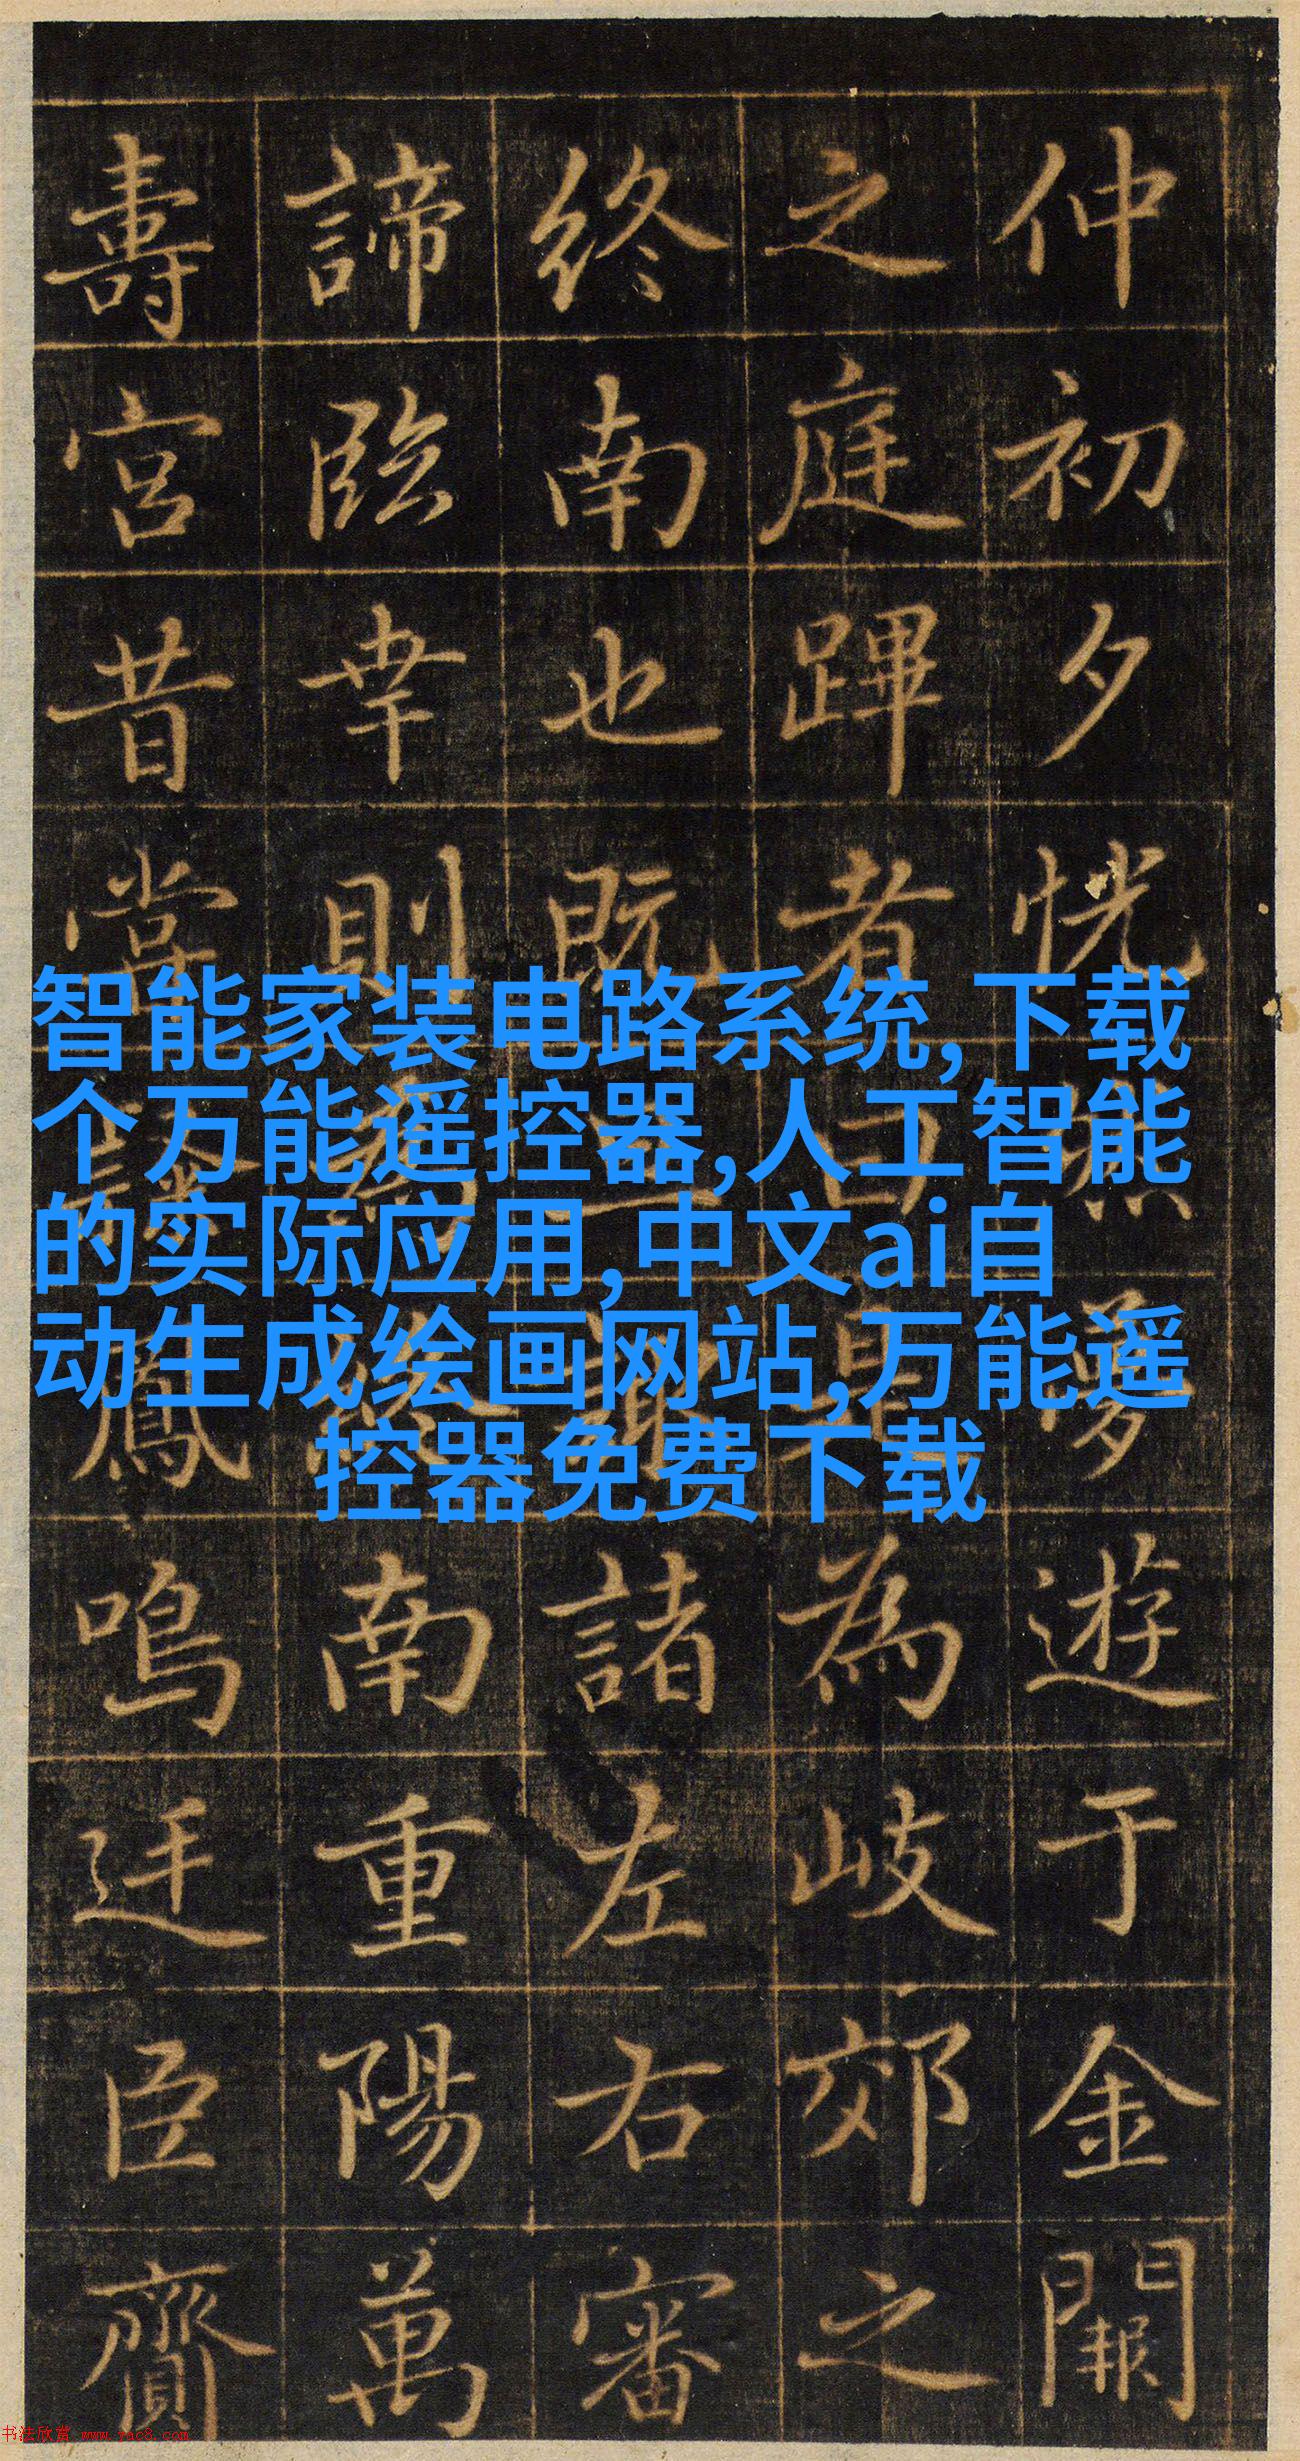 仲初夕恍遊于金闕
之庭蹕者曰是為岐郊之
終南也既諸左右審
諦臨幸則南重陽萬
壽宮昔嘗鳳鳴迋臣
智能家装电路系统,下载
个万能遥控器,人工智能
的实际应用,中文ai自
动生成绘画网站,万能遥
控器免费下载
书法欣赏 www.yac8.com